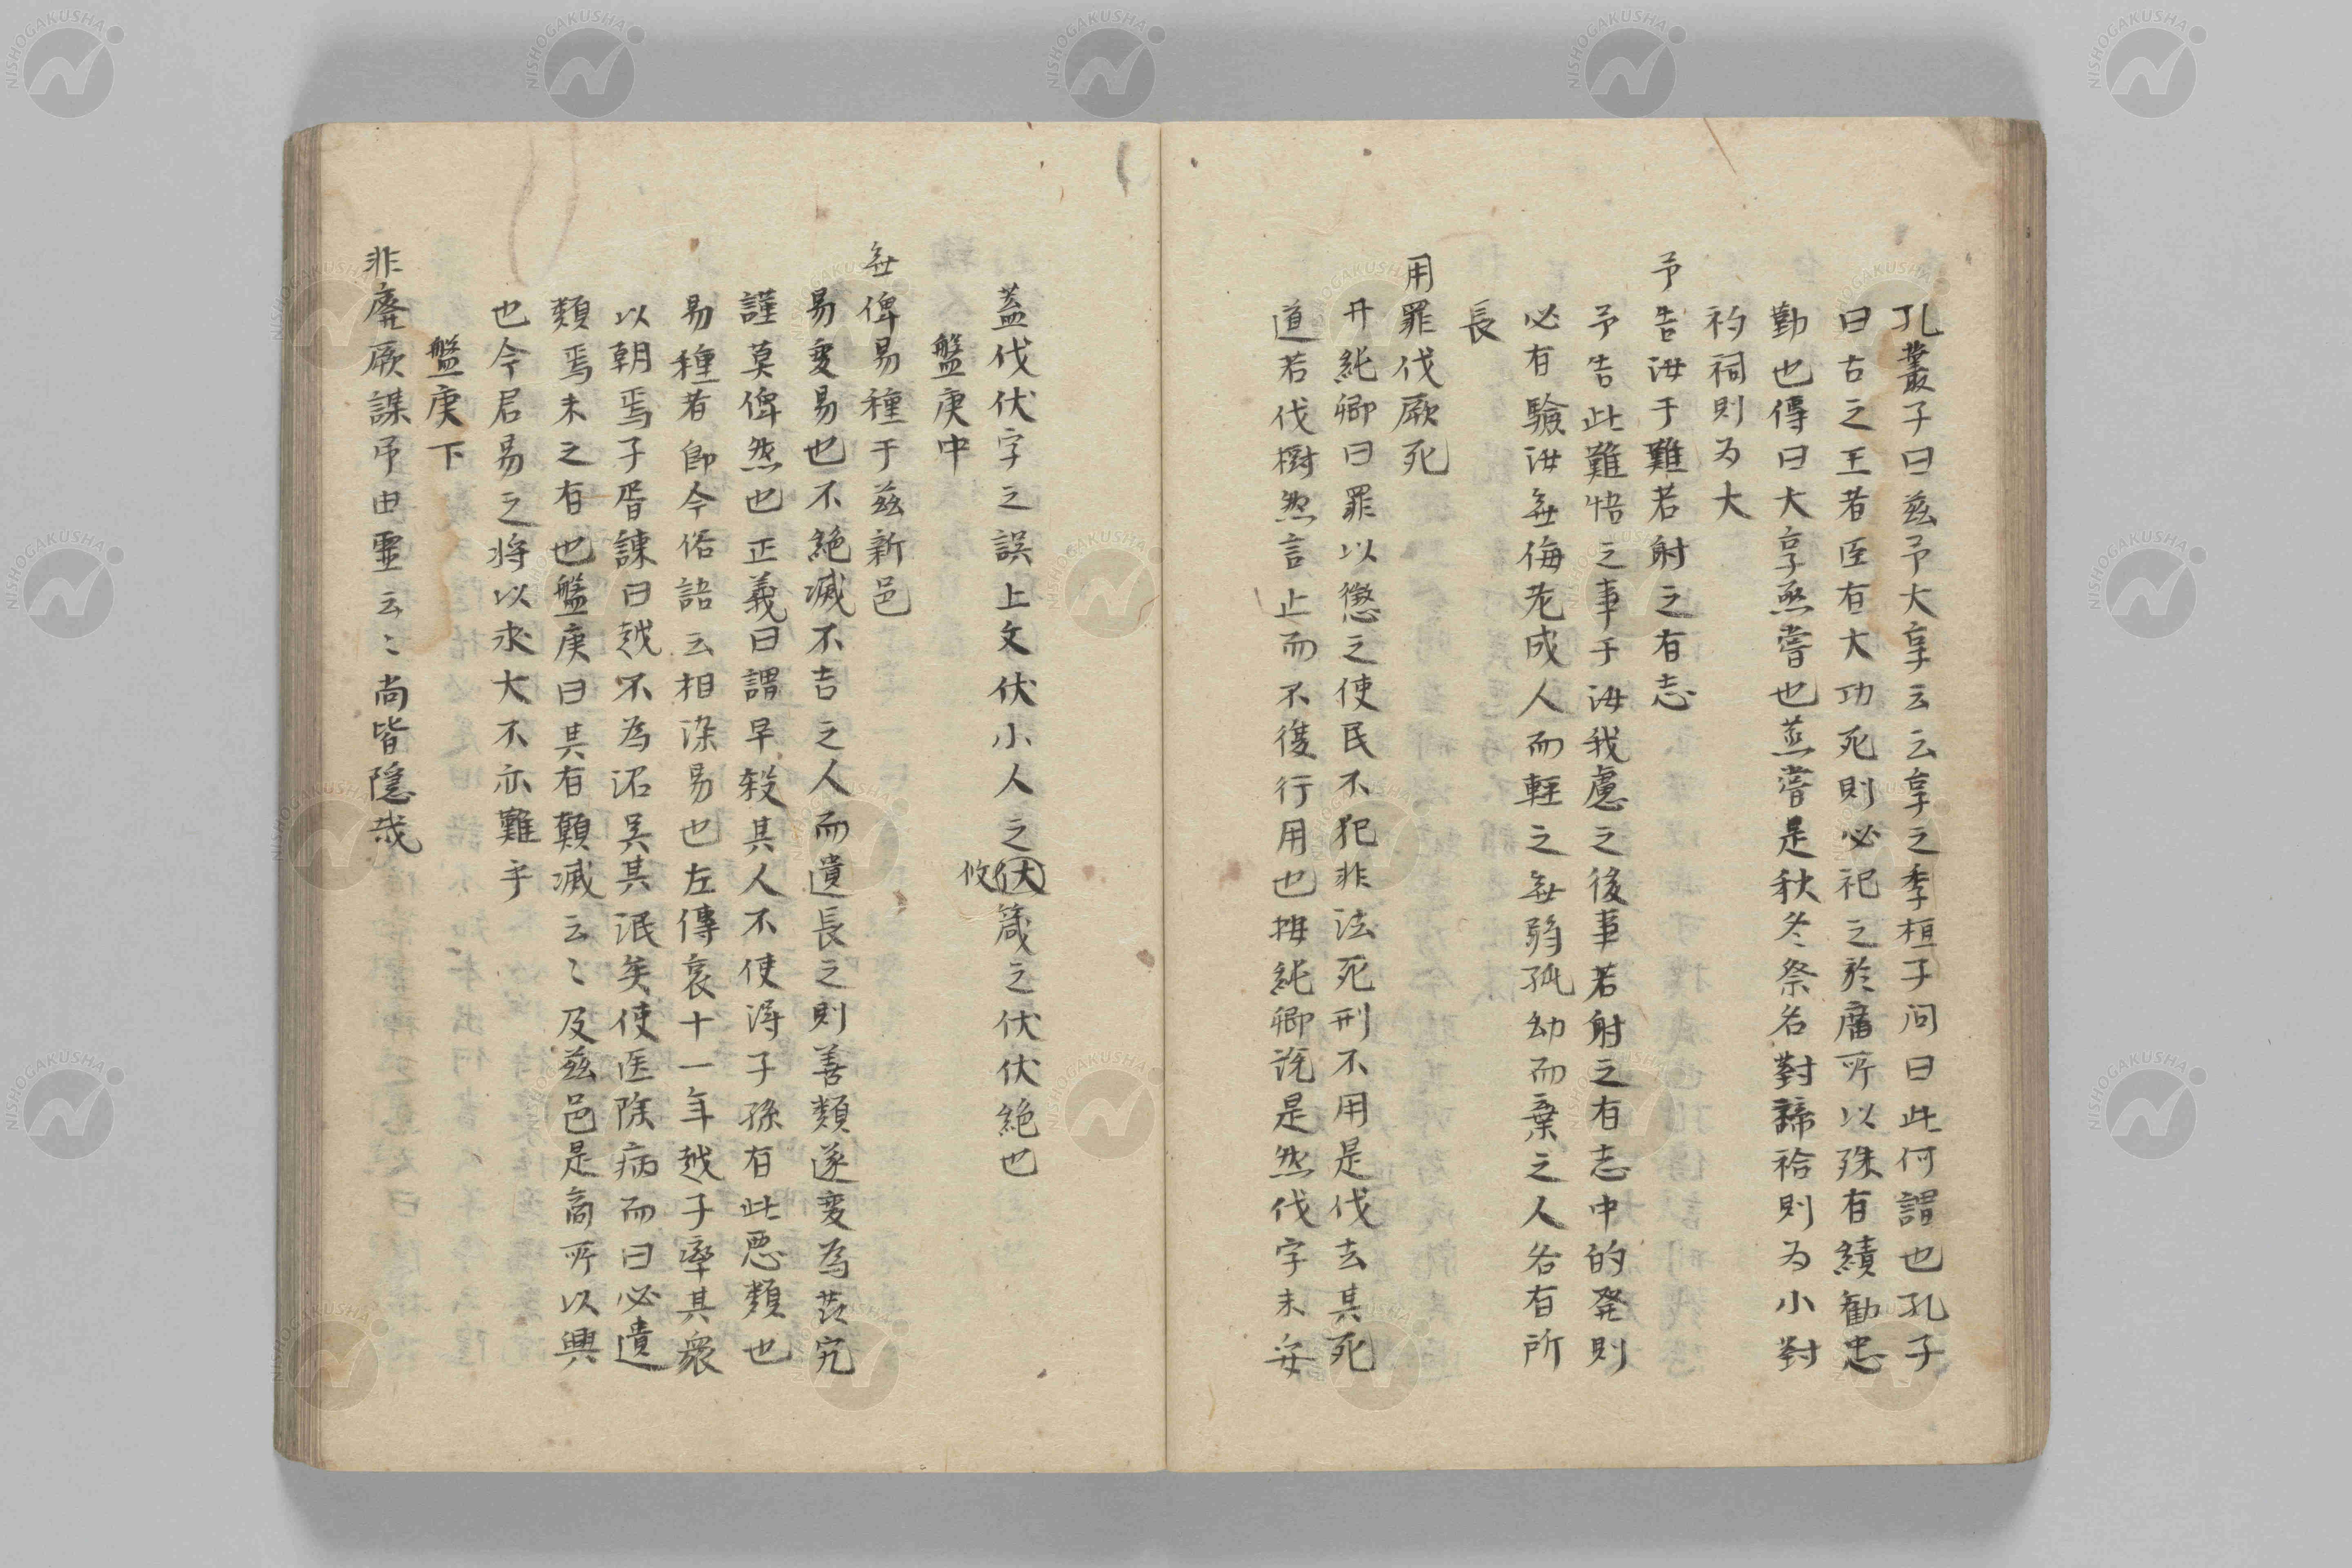 孔叢子曰茲予大享云云享之季桓子问曰此何謂也孔子
曰古之王者臣有大功死則必祀之於庿所以殊有績勧忠
勤也傳曰大享烝嘗也烝嘗是秋冬祭名對禘祫則为小對
礿祠則为大
予告汝于難若射之有志
予告此難悟之事于汝我慮之後事若射之有志中的発則
必有驗汝無侮老成人而軽之無弱孤幼而棄之人各有所
長
用罪伐厥死
升純卿曰罪以懲之使民不犯非法死刑不用是伐去其死
道若伐樹然言止而不復行用也按純卿説是然伐字未安
蓋伐伏字之誤上文伏小人之伏箴之伏伏絶也
攸
盤庚中
無俾易種于茲新邑
易変易也不絶滅不吉之人而遺長之則善類遂変為茨宄
謹莫俾然也正義曰謂早殺其人不使得子孫有此悪類也
易種者即今俗語云相染易也左傳哀十一年越子率其衆
以朝焉子胥諫曰越不為沼吴其泯矣使医除病而曰必遺
類焉未之有也盤庚曰其有顛滅云〻及茲邑是商所以興
也今君易之将以求大不亦難乎
盤庚下
非廃厥謀弔由霊云〻尚皆隠哉
NISHOGAKUSHA